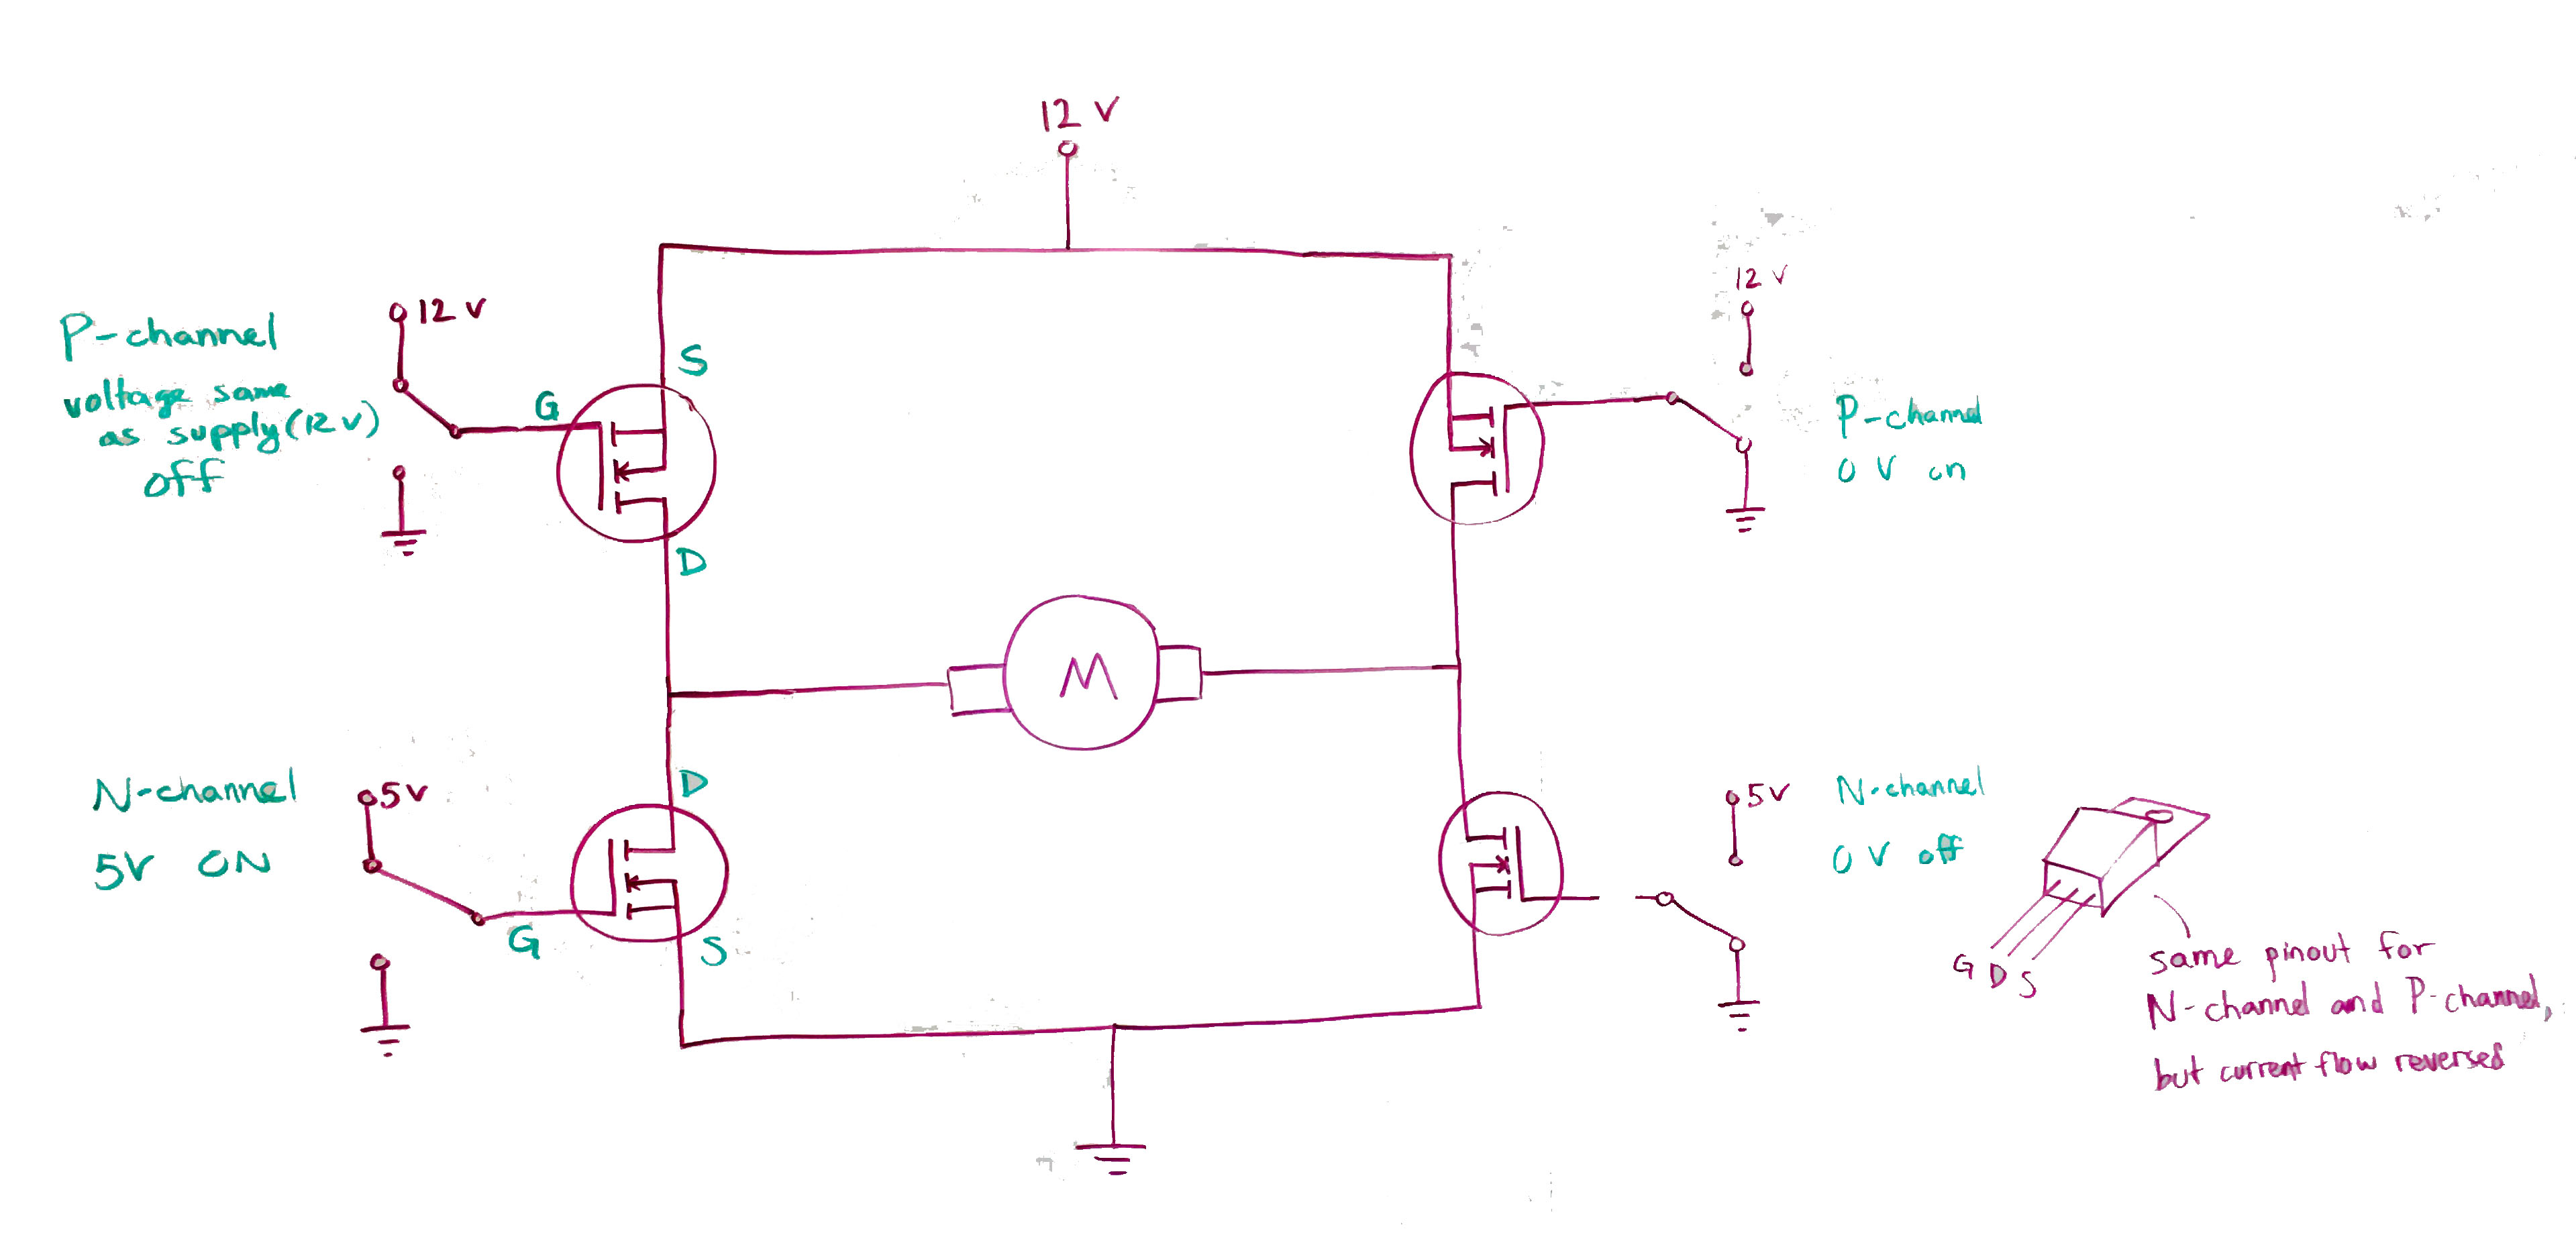 12 V
12 V
P-channel
voltage same
as supply (12 V)
off
G
S
D
12 V
P-channel
0 V on
M
N-channel
5V ON
5V
D
G
S
5V
N-channel
0 V off
G D S
same pinout for
N-channel and P-channel,
but current flow reversed